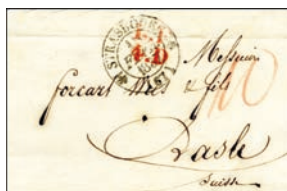 STRASBOURG
L.T.
4.D
(67)
Messieurs
forcart Weis & fils
10
Basle
Suisse